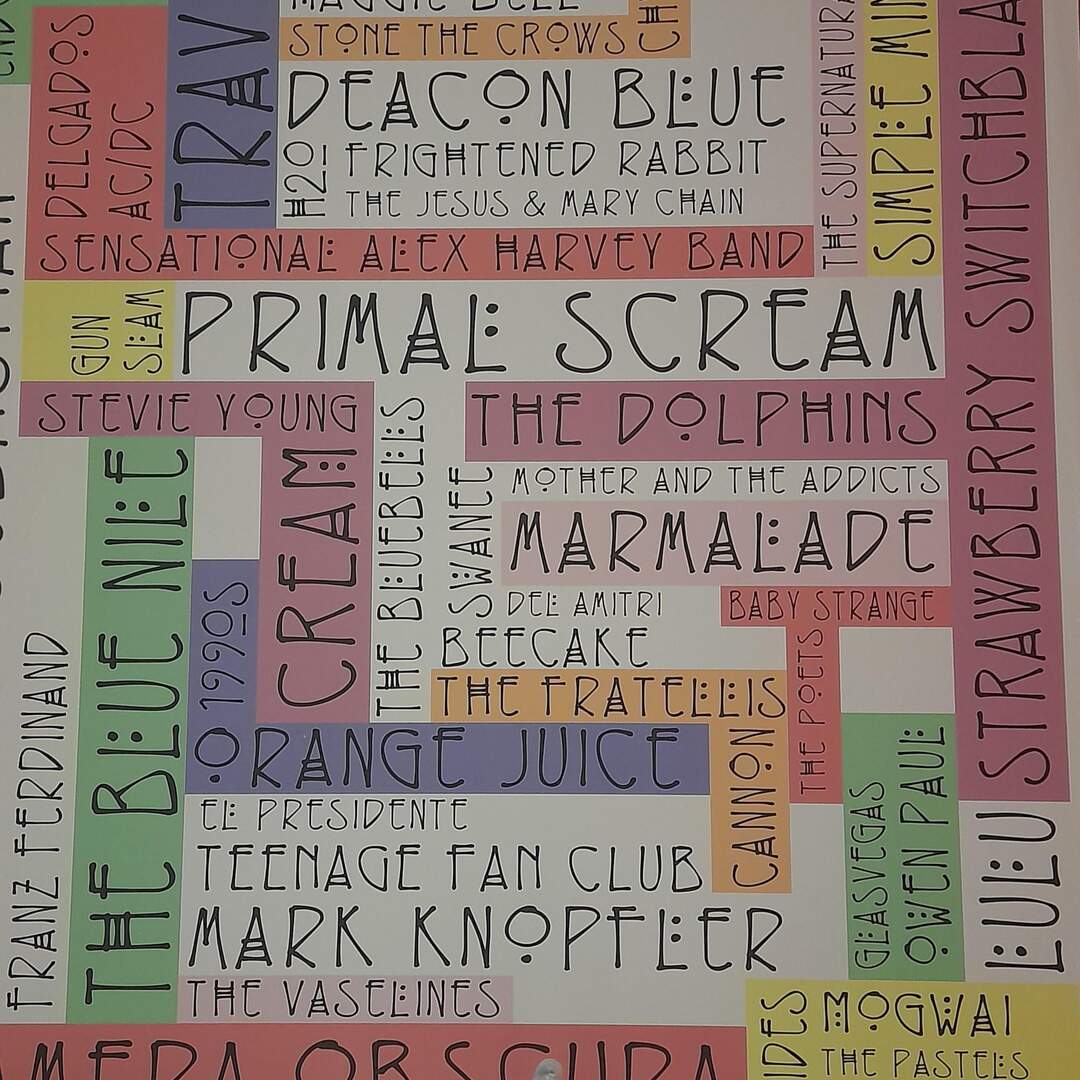 MAGGIE BELL
STONE THE CROWS
DELGADOS
AC/DC
TRAV
DEACON BLUE
H2O!
FRIGHTENED RABBIT
THE JESUS & MARY CHAIN
THE SUPERNATURA
SIMPLE MIN
STRAWBERRY SWITCHBLA
SENSATIONAL ALEX HARVEY BAND
GUN
SLAM
PRIMAL SCREAM
STEVIE YOUNG
THE DOLPHINS
THE BLUE NILE
CREAM
THE BLUEBELLS
SWANEE
MOTHER AND THE ADDICTS
MARMALADE
1990S
DEL AMITRI
BABY STRANGE
BEECAKE
THE FRATELLIS
THE POETS
FRANZ FERDINAND
ORANGE JUICE
CANNON
GLASVEGAS
OWEN PAUL
LULU
EL PRESIDENTE
TEENAGE FAN CLUB
MARK KNOPFLER
THE VASELINES
IDES
MOGWAI
THE PASTELS
MERA OBSCURA